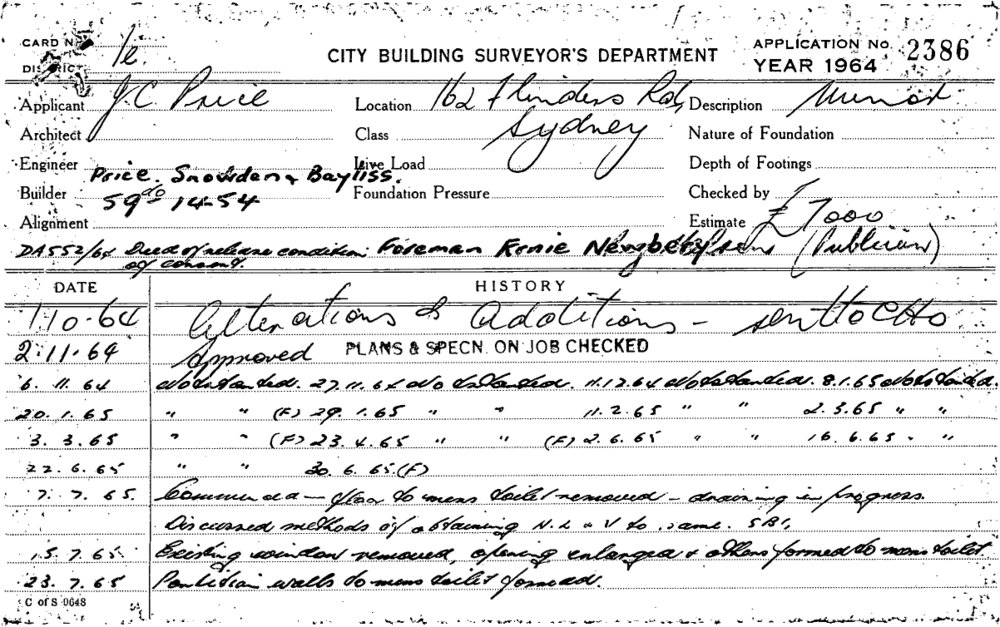 CARD No. 1e. CITY BUILDING SURVEYOR'S DEPARTMENT APPLICATION No. 2386
DISTRICT YEAR 1964
Applicant J.C Price Location 162 Flinders Rd, Description Minor
Architect Class Sydney Nature of Foundation
Engineer Price. Snowden & Bayliss. Live Load Depth of Footings
Builder 59 do 14-54 Foundation Pressure Checked by
Alignment Estimate £7000
DA552/64 Deed of release condition Foreman Ernie (Publican)
of consent.
DATE HISTORY
1.10.64 Alterations & additions - sent to CHO
2.11.64 Approved PLANS & SPECN. ON JOB CHECKED
6.11.64 Not started. 27.11.64 Not started. 11.12.64 Not started. 8.1.65 Not started.
20.1.65 " " (F) 29.1.65 " " 11.2.65 " " 2.3.65 " "
3.3.65 " " (F) 23.4.65 " " (F) 2.6.65 " " 16.6.65 " "
22.6.65 " " 30.6.65 (F)
7.7.65. Commenced - floor to mens toilet removed - draining in progress.
Discussed methods of obtaining N.L & V to same.
15.7.65. Existing window removed, opening enlarged & others formed to mens toilet
23.7.65 Partition walls to mens toilet formed.
C of S 0648